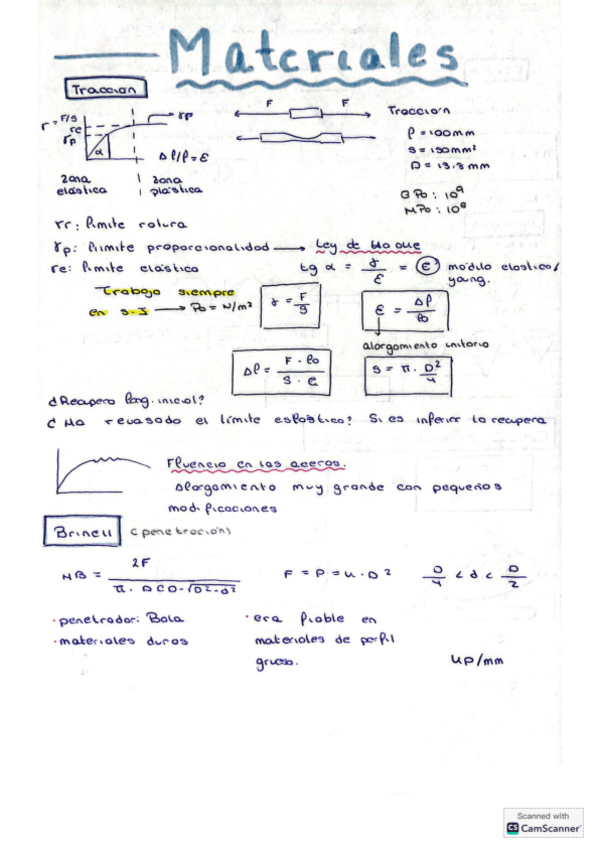 Materiales
Tracción
σ = F/S
σe
σp
α
σr
Δl/l = ε
zona elástica
zona plástica
F F
Tracción
l = 100mm
S = 150mm²
D = 13.8 mm
GPa: 10⁹
MPa: 10⁶
σr: límite rotura
σp: límite proporcionalidad → Ley de Hooke
σe: límite elástico
tg α = σ/ε = E módulo elástico/
yong.
Trabajo siempre
en S.I → Pa = N/m²
σ = F/S
ε = Δl/lo
alorgamiento unitario
Δl = F · lo / S · E
S = π · D²/4
¿Recupera long. inicial?
¿Ha revasado el límite eslástico? Si es inferior la recupera
Fluencia en los aceros.
Alorgamiento muy grande con pequeños
modificaciones
Brinell (penetración)
HB = 2F / π · D(D-√D²-d²)
F = P = K · D²
D/4 < d < D/2
· penetrador: Bola
· materiales duros
· era fiable en
materiales de perfil
grueso.
Kp/mm
Scanned with
CS CamScanner